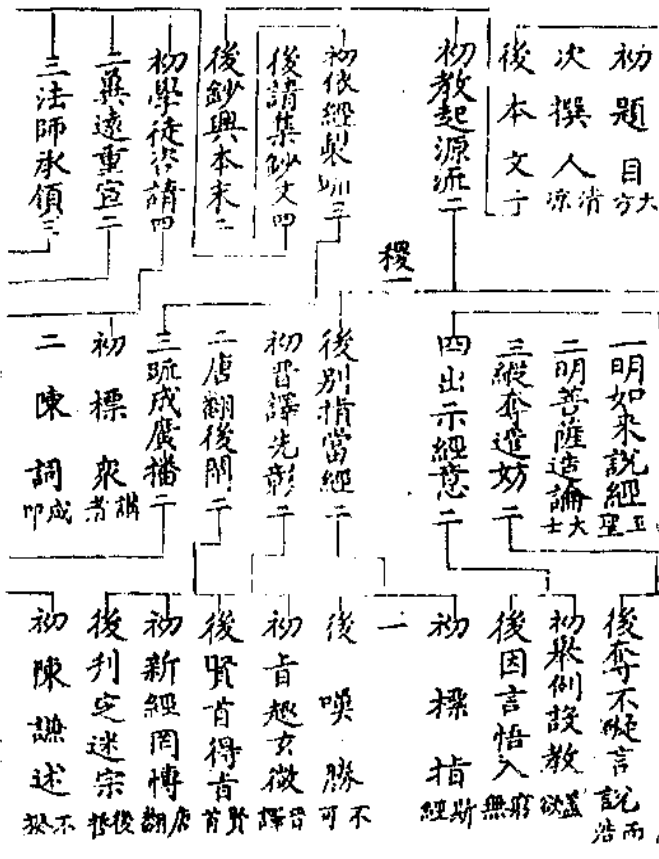 初題目大方
次撰人清涼
後本文二
初教起源流二
初依經製疏三
後請集鈔文四
後鈔興本末二
初學徒咨請四
二兼遠重宣二
三法師承領三
稷一
一明如來說經
二明菩薩造論大士
三縱奪遮妨二
四出示經意二
後別指當經二
初晉譯先彰二
二唐翻後開二
三疏成廣播二
初標眾講者
二陳詞咸叩
後奪不礙言說而浩
初舉例設教蓋欲
後因言悟入無窮
初標指斯經
一
後嘆勝不可
初旨趣玄微晉譯
後賢首得旨賢首
初新經罔博唐翻
後判定迷宗後哲
初陳謙述不揆